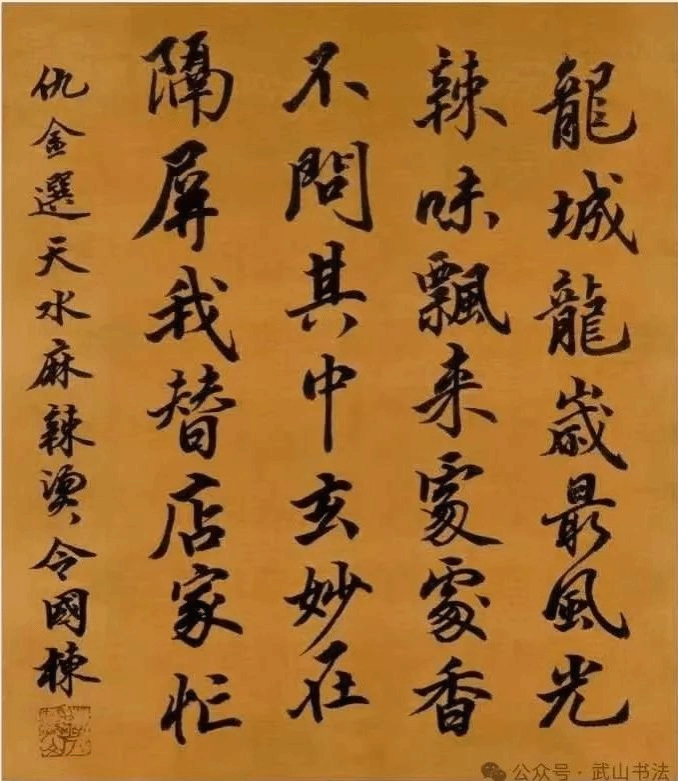 龍城龍歲最風光
辣味飄来處處香
不問其中玄妙在
隔屏我替店家忙
仇金選天水麻辣燙令國棟
公众号·武山书法